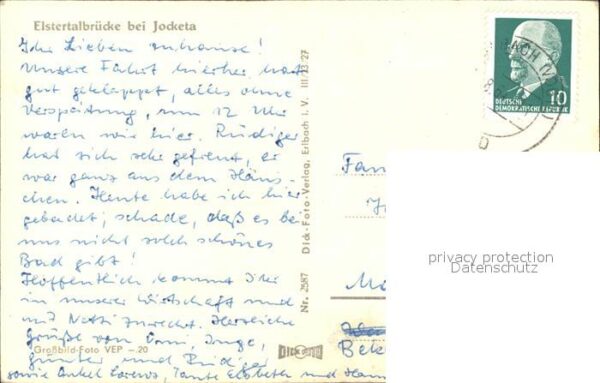 Elstertalbrücke bei Jocketa
Ihr Lieben zuhause!
Unsere Fahrt hierher hat
gut geklappt, alles ohne
Verspätung, um 12 Uhr
waren wir hier. Rüdiger
hat sich sehr gefreut, er
war ganz aus dem Häus-
chen. Heute habe ich hier
gebadet, schade, daß es bei
uns nicht solch schönes
Bad gibt!
Hoffentlich kommt Ihr
in unserer Wirtschaft und
mit Netti zurecht. Herzliche
Grüße von Omi, Inge,
Günter und Rüdiger
sowie Onkel Lorenz, Tante Elsbeten und
Großbild-Foto VEP – 20
Nr. 2587 Dick-Foto-Verlag, Erlbach i. V. III/23/27
DICK FOTO
10
DEUTSCHE
DEMOKRATISCHE REPUBLIK
Fam
privacy protection
Datenschutz